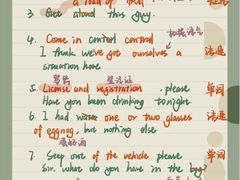 a load of
3 Get a load this guy.
4. Come in control central
I think we've got ourselves a
situation here
驾照 登记证
5. License and registration, please 单词
Have you been drinking tonight
6. I had one or two glasses 语连
of eggnog, but nothing else
蛋奶酒
7. Step out of the vehicle please 单词
Sir. what do you have in the bag?